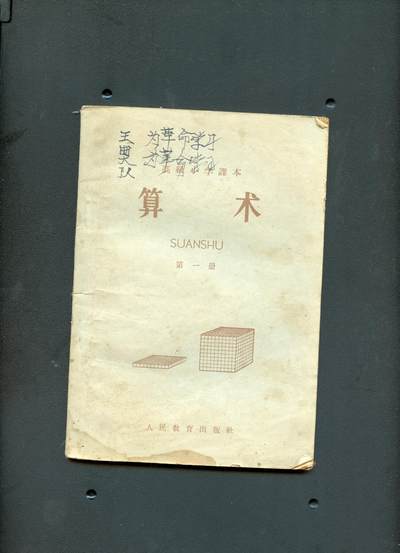 王 为革命学习
为革命学习
高級小学課本
算 术
SUANSHU
第一册
人民教育出版社